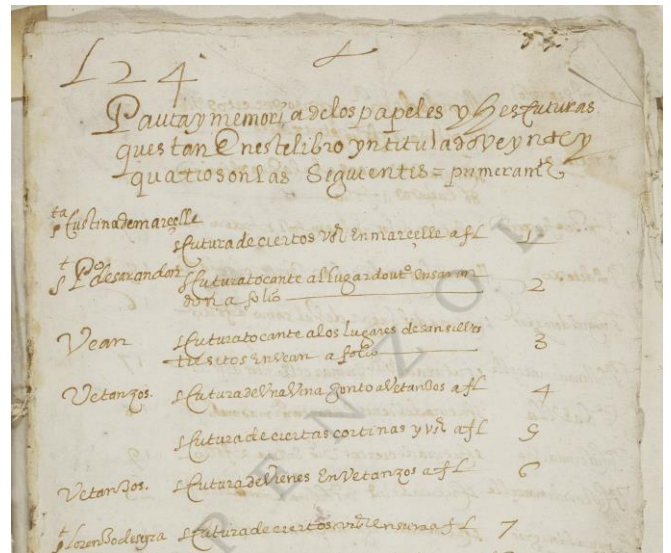 L 24
Pauta y memoria de los papeles y Escrituras
questan En este libro yntitulado Veynte y
quatro son las Seguientes = primeramte
sta Cristina de marcelle
scritura de ciertos vs En marcelle a fL 1
st Po de sarandon scritura tocante al lugar do uto En saran
don a folio 2
Vean scritura tocante a los lugares de san
sitos En vean a folio 3
Vetanzos. scritura de Una Vina Jonto a Vetanzos a fL 4
scritura de ciertas cortinas y vs a fL 5
Vetanzos. scritura de Vienes En Vetanzos a fL 6
st Lorenzo scritura de ciertos a fL 7
PENZOL